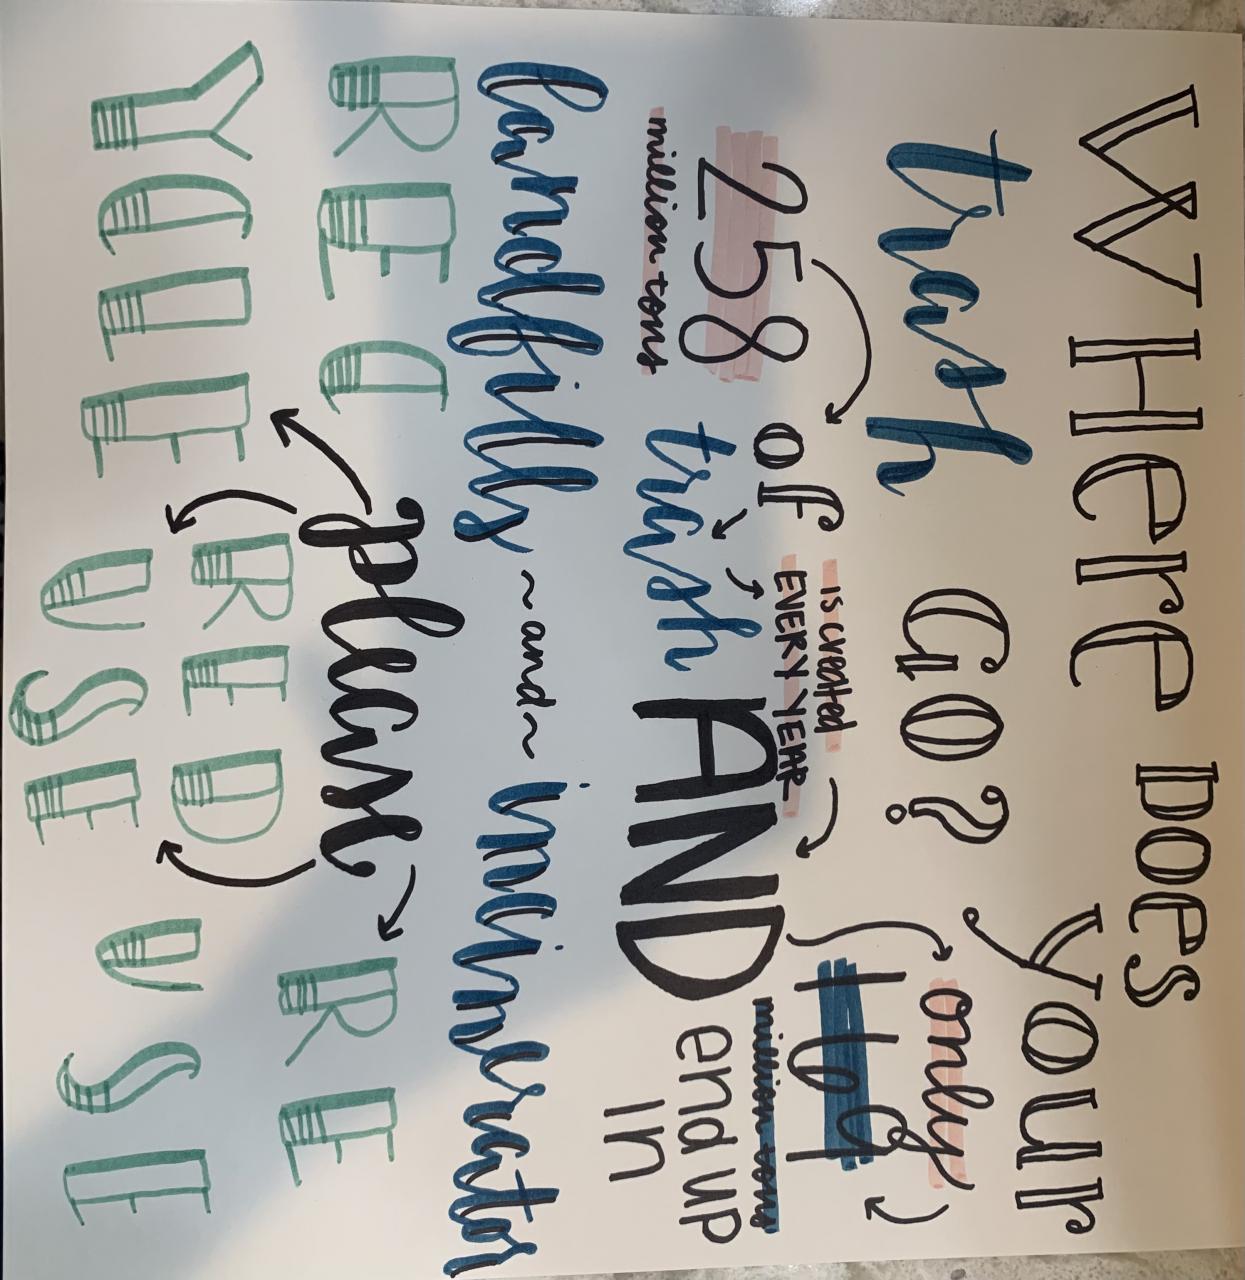 WHere Does your
trash Go?
258 million tons of trash is created EVERY YEAR
AND only 169 million tons end up in
landfills ~and~ incinerators
please
RECYCLE
REDUSE
REUSE